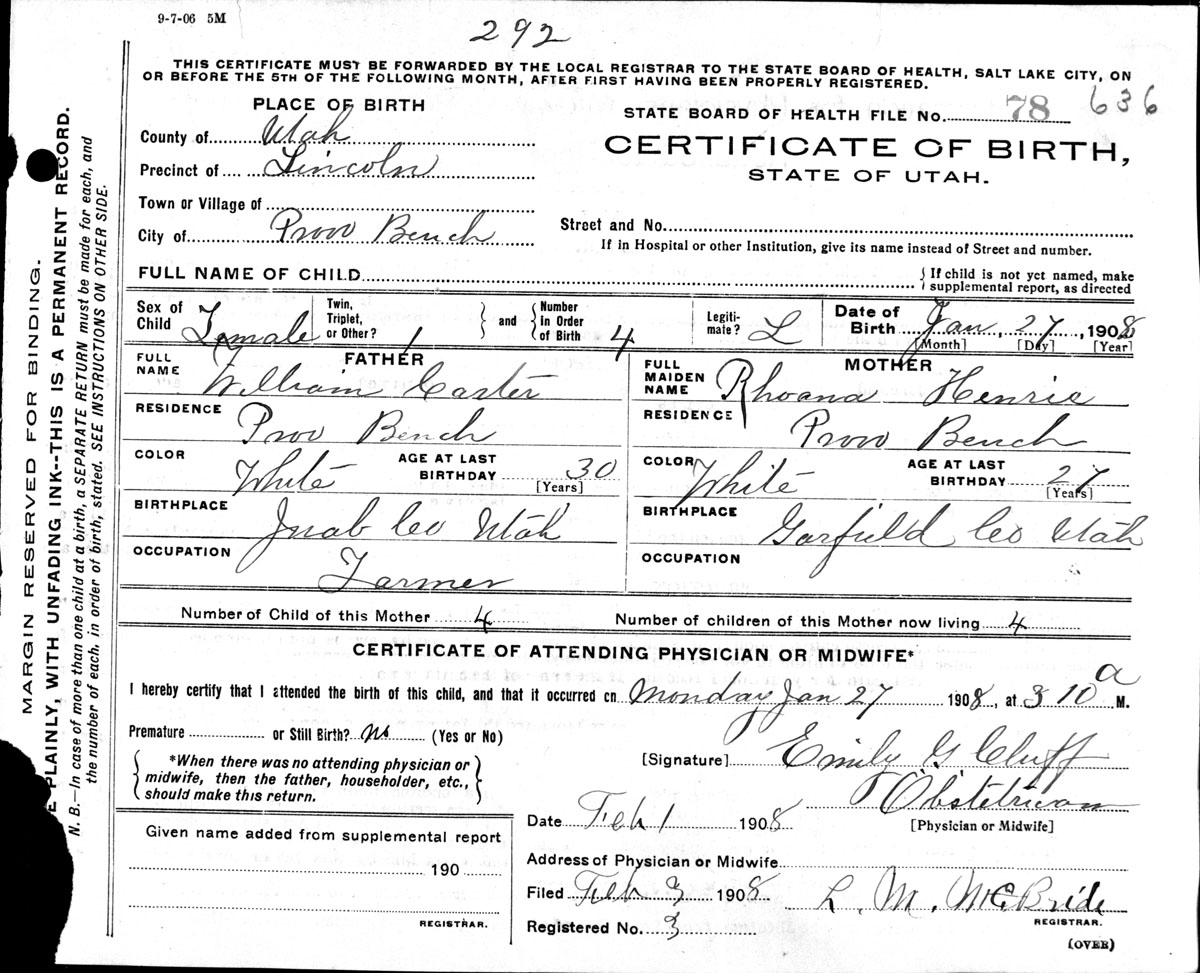 9-7-06 5M
292
THIS CERTIFICATE MUST BE FORWARDED BY THE LOCAL REGISTRAR TO THE STATE BOARD OF HEALTH, SALT LAKE CITY, ON
OR BEFORE THE 5TH OF THE FOLLOWING MONTH, AFTER FIRST HAVING BEEN PROPERLY REGISTERED.
PLACE OF BIRTH
County of Utah
Precinct of Lincoln
Town or Village of
City of Provo Bench
STATE BOARD OF HEALTH FILE No. 78 636
CERTIFICATE OF BIRTH,
STATE OF UTAH.
Street and No.
If in Hospital or other Institution, give its name instead of Street and number.
FULL NAME OF CHILD
{ If child is not yet named, make
supplemental report, as directed
Sex of Child Female
Twin, Triplet, or Other? 1
and
Number in Order of Birth 4
Legiti-mate? L
Date of Birth Jan, 27, 1908
[Month] [Day] [Year]
FATHER
FULL NAME William Carter
RESIDENCE
Provo Bench
COLOR White AGE AT LAST BIRTHDAY 30
[Years]
BIRTHPLACE
Juab Co Utah
OCCUPATION
Farmer
MOTHER
FULL MAIDEN NAME Rhoana Henrie
RESIDENCE
Provo Bench
COLOR White AGE AT LAST BIRTHDAY 27
[Years]
BIRTHPLACE
Garfield Co Utah
OCCUPATION
Number of Child of this Mother 4 Number of children of this Mother now living 4
CERTIFICATE OF ATTENDING PHYSICIAN OR MIDWIFE*
I hereby certify that I attended the birth of this child, and that it occurred on Monday Jan 27 1908, at 3 10 a M.
Premature or Still Birth? No (Yes or No)
*When there was no attending physician or
midwife, then the father, householder, etc.,
should make this return.
[Signature] Emily G Cluff
Obstetrican
[Physician or Midwife]
Date Feb 1 1908
Given name added from supplemental report
190
REGISTRAR.
Address of Physician or Midwife
Filed Feb 3 1908 L. M. McBride
REGISTRAR.
Registered No. 3
(OVER)
MARGIN RESERVED FOR BINDING.
E PLAINLY, WITH UNFADING INK--THIS IS A PERMANENT RECORD.
N. B.—In case of more than one child at a birth, a SEPARATE RETURN must be made for each, and
the number of each, in order of birth, stated. SEE INSTRUCTIONS ON OTHER SIDE.